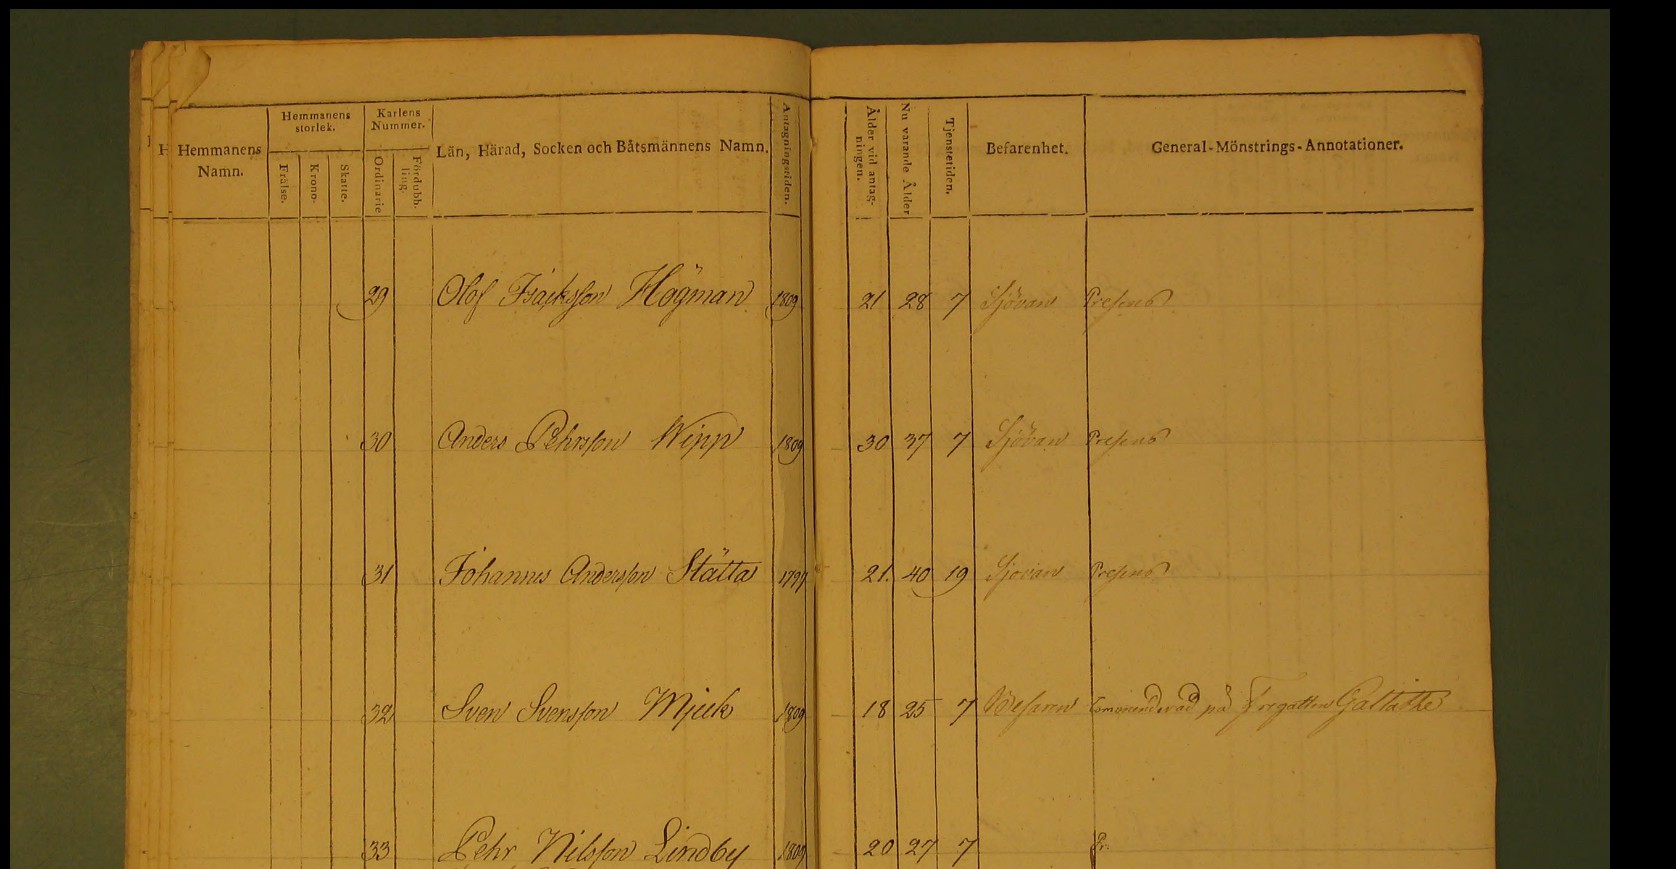 Hemmanens Namn.
Hemmanens storlek.
Frälse.
Krono-
Skatte.
Karlens Nummer.
Ordinarie
Fördubbling.
Län, Härad, Socken och Båtsmännens Namn.
Antagningstiden.
Ålder vid antagningen.
Nu varande Ålder
Tjenstetiden.
Befarenhet.
General-Mönstrings-Annotationer.
29 Olof Isacksson Högman 1809 21 28 7 Sjövan Presens
30 Anders Pehrsson Wipp 1809 30 37 7 Sjövan Presens
31 Johannes Andersson Stätta 1797 21. 40 19 Sjövan Presens
32 Sven Svensson Mjuk 1809 18 25 7 Befaren Commenderad på Fregatten Galtathé
33 Pehr Nilsson Lindby 1809 20 27 7 Pr.